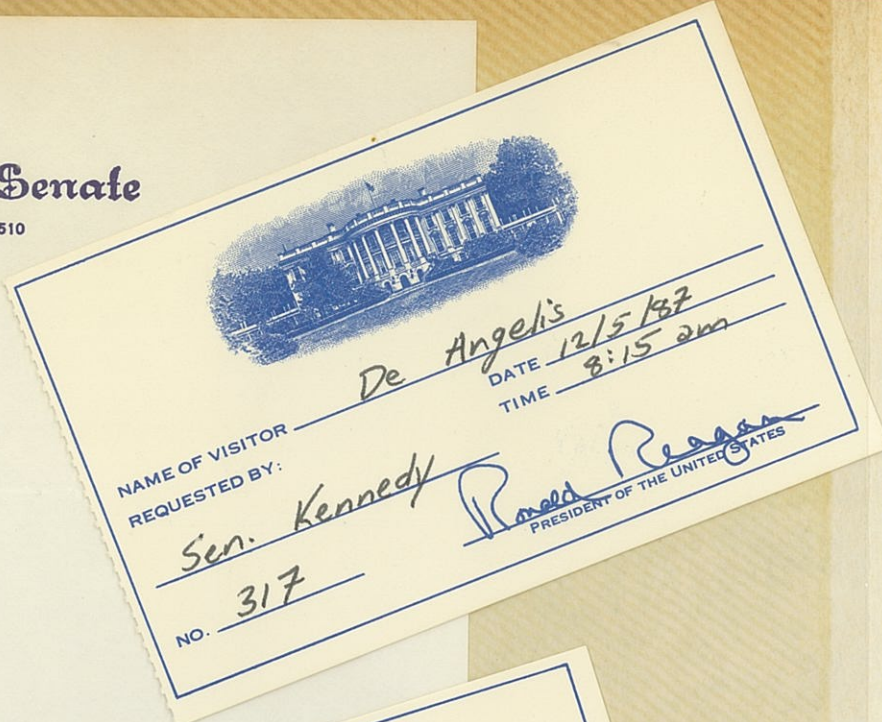 Senate
510
De Angelis
NAME OF VISITOR
DATE 12/5/87
TIME 8:15 am
REQUESTED BY:
Sen. Kennedy
Ronald Reagan
PRESIDENT OF THE UNITED STATES
NO. 317